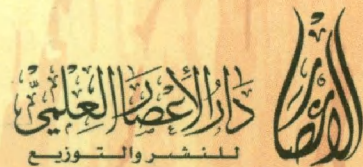 دَارُ الإِعْصَارِ العِلْمِيّ
للنشر والتوزيع
الإعصار